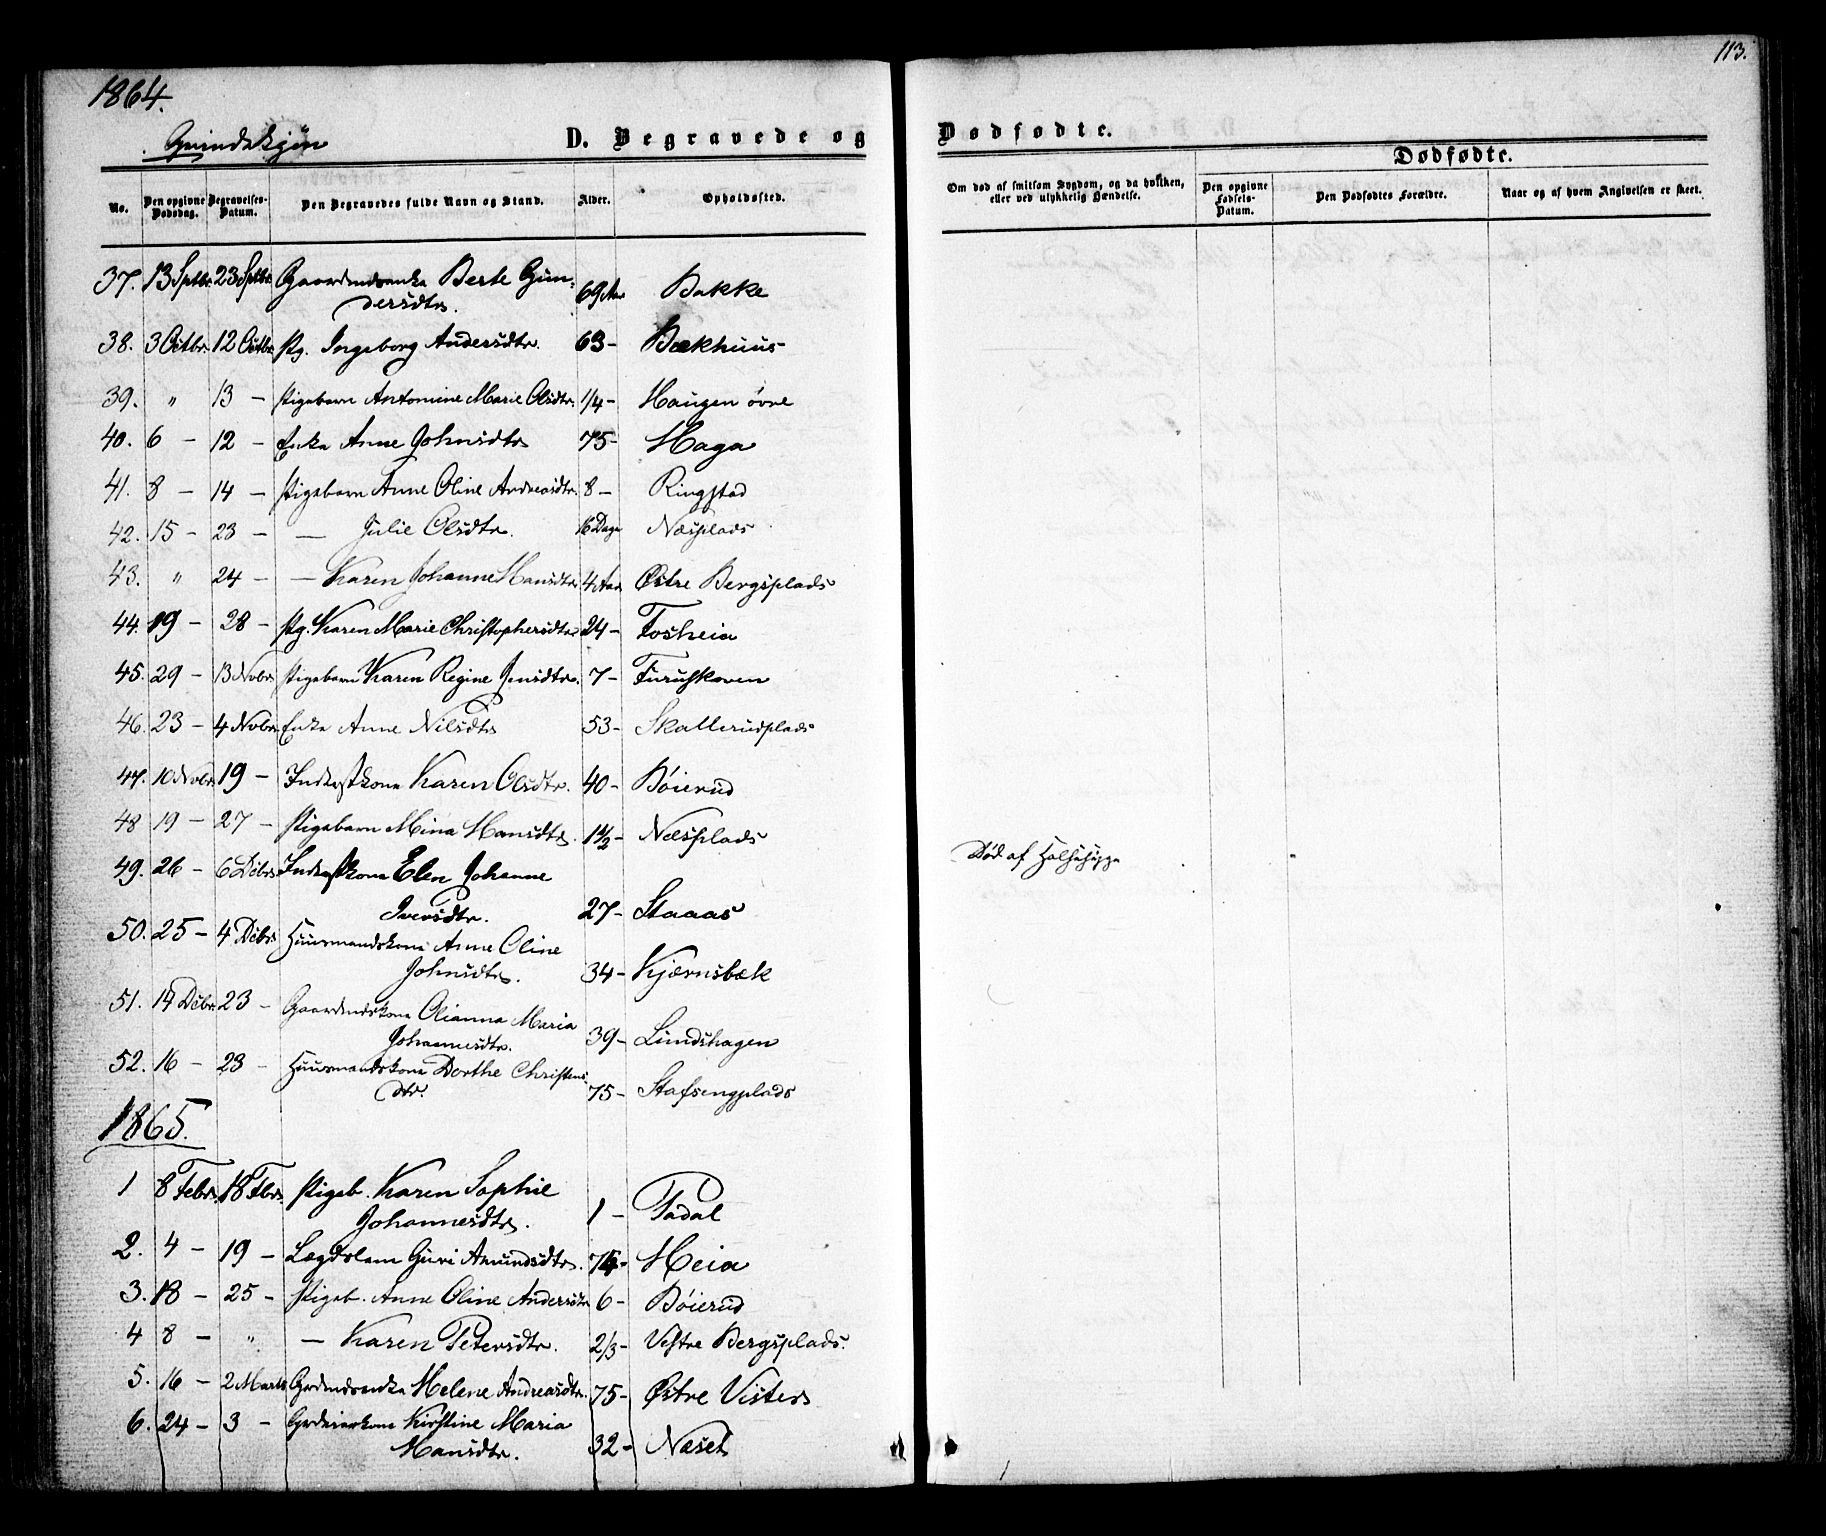 1864.
113.
Qvindekjøn
D. Begravede og Dødfødte.
Dødfødte.
No.
Den opgivne Dødsdag.
Begravelses-Datum.
Den Begravedes fulde Navn og Stand.
Alder.
Opholdssted.
Om død af smitsom Sygdom, og da hvilken, eller ved ulykkelig Hændelse.
Den opgivne Fødsels-Datum.
Den Dødfødtes Forældre.
Naar og af hvem Angivelsen er skeet.
37. 13 Sptbr. 23 Sptbr. Gaardmdsenke Berte Gun-
dersdtr. 69 Aar Bakke
38. 3 Octbr. 12 Octbr. Pg. Ingeborg Andersdtr. 63 - Bækhuus
39. " 13 - Pigebarn Antomine Marie Olsdtr. 1/4 - Haugen øvre
40. 6 - 12 - Enke Anne Johnsdtr 75 - Haga
41. 8 - 14 - Pigebarn Anne Oline Andreasdtr. 8 - Ringstad
42. 15 - 23 - — Julie Olsdtr. 16 Dage Næsplads
43. " 24 - — Karen Johanne Hansdtr 4 Aar Østre Bergsplads
44. 19 - 28 - Pg. Karen Marie Christophersdtr 24 - Fosheia
45. 29 - 13 Nvbr. Pigebarn Karen Regine Jensdtr. 7 - Furuskoven
46. 23 - 4 Nvbr. Enke Anne Nilsdtr 53 - Skallerudplads
47. 10 Nvbr. 19 - Inderstkone Karen Olsdtr. 40 - Bøierud
48 19 - 27 - Pigebarn Mina Hansdtr. 1 1/2 - Næsplads
49. 26 - 6 Dcbr. Inderstkone Elen Johanne Død af Halssyge
Iversdtr. 27 - Staaas
50. 25 - 4 Dcbr. Huusmandskone Anne Oline
Johnsdtr. 34 - Kjærnsbæk
51. 14 Dcbr. 23 - Gaardmdskone Olianna Maria
Johannesdtr. 39 - Lundshagen
52. 16 - 23 - Huusmandskone Dorthe Christens
dtr. 75 - Stafsengplads
1865.
1 8 Febr. 18 Fbr. Pigeb. Karen Sophie
Johannesdtr. 1 - Tadal
2. 4 - 19 - Lægdslem Guri Amundsdtr. 74 - Heia
3. 18 - 25 - Pigeb. Anne Oline Andersdtr 6 - Bøierud
4 8 - " — Karen Petersdtr. 2/3 - Vestre Bergsplads.
5. 16 - 2 Marts Grdmdsenke Helene Andreasdtr. 75 - Østre Visters
6. 24 - 3 - Grdeierkone Kirstine Maria
Hansdtr. 32 - Næset